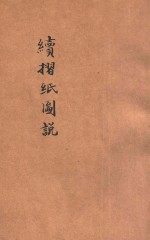 續摺紙圖說